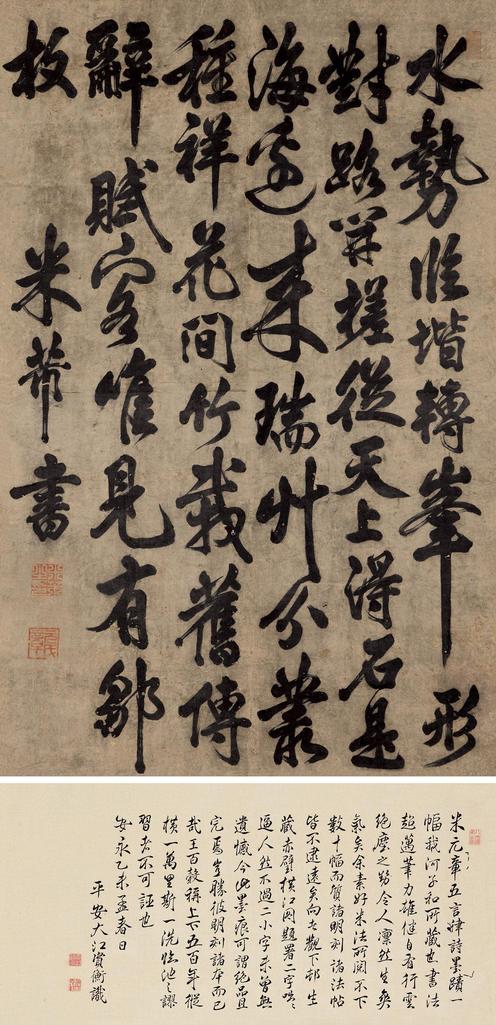 水勢臨堦轉峯形
對路開槎從天上得石是
海邊來瑞艸分叢
種祥花間竹栽舊傳
辭賦客唯見有鄒
枚 米芾書
米元章五言律詩墨蹟一
幅我河子和所藏也書法
超邁筆力雄健自有行雲
絶塵之勢令人凛然生爽
氣矣余素好米法所閱不下
數十幅而質諸明刻諸法帖
皆不逮遠矣向者觀下邨生
藏赤壁橫江圖題署二字咄々
逼人然不過二小字未嘗無
遺憾今此墨痕可謂絶品且
完焉豈勝彼明刻諸本而已
哉王百穀稱上下五百年縱
橫一萬里斯一洗臨池之謬
習者不可誣也
安永乙未孟春日
平安大江資衡識